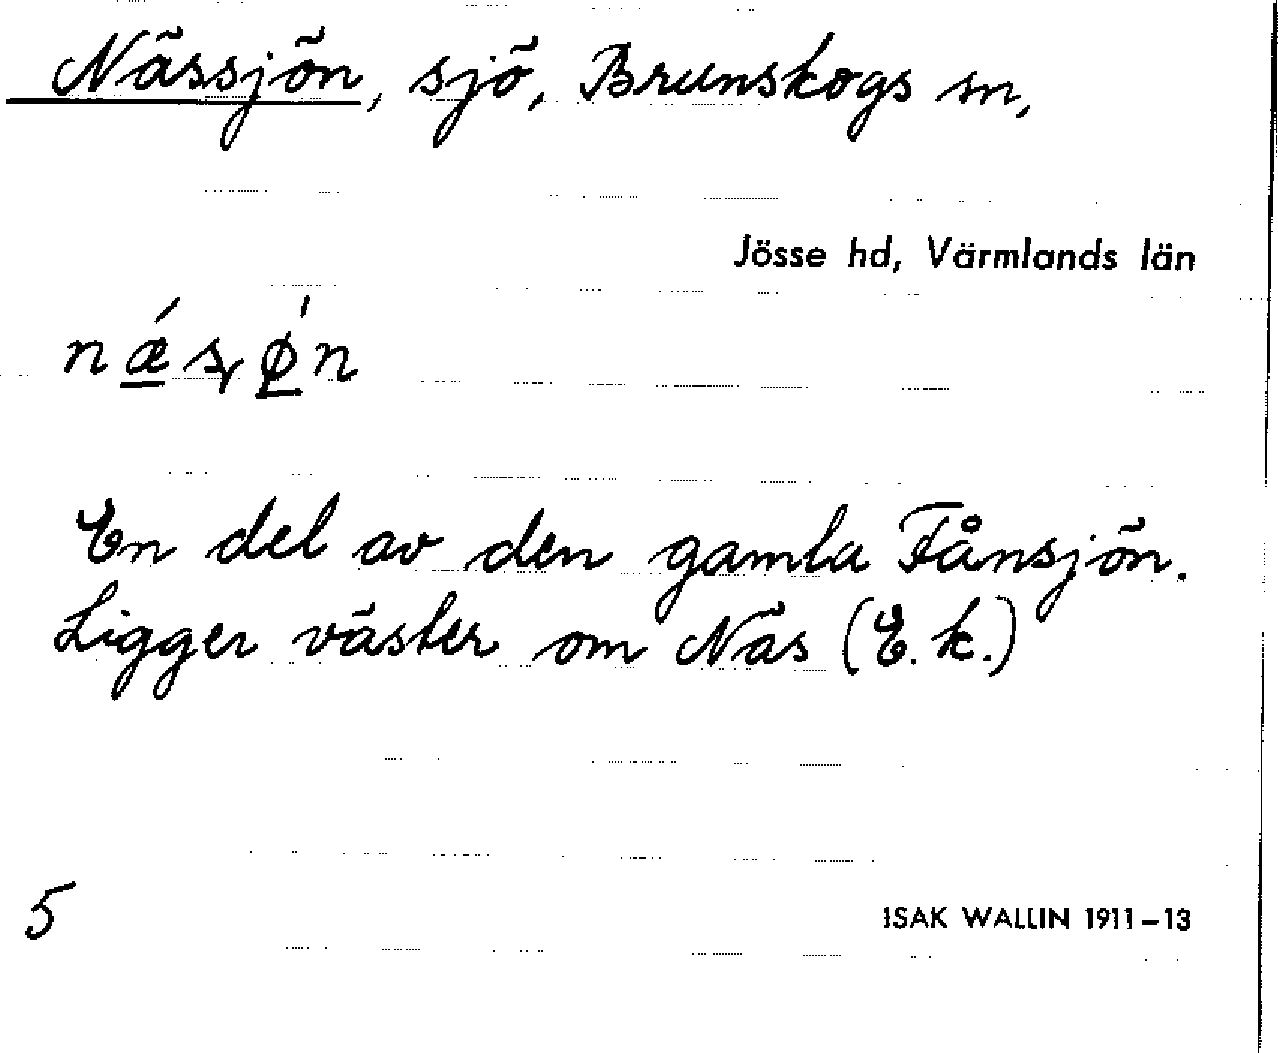 Nässjön, sjö, Brunskogs sn,
Jösse hd, Värmlands län
En del av den gamla Fånsjön.
Ligger väster om Näs (E.k.)
5
ISAK WALLIN 1911–13